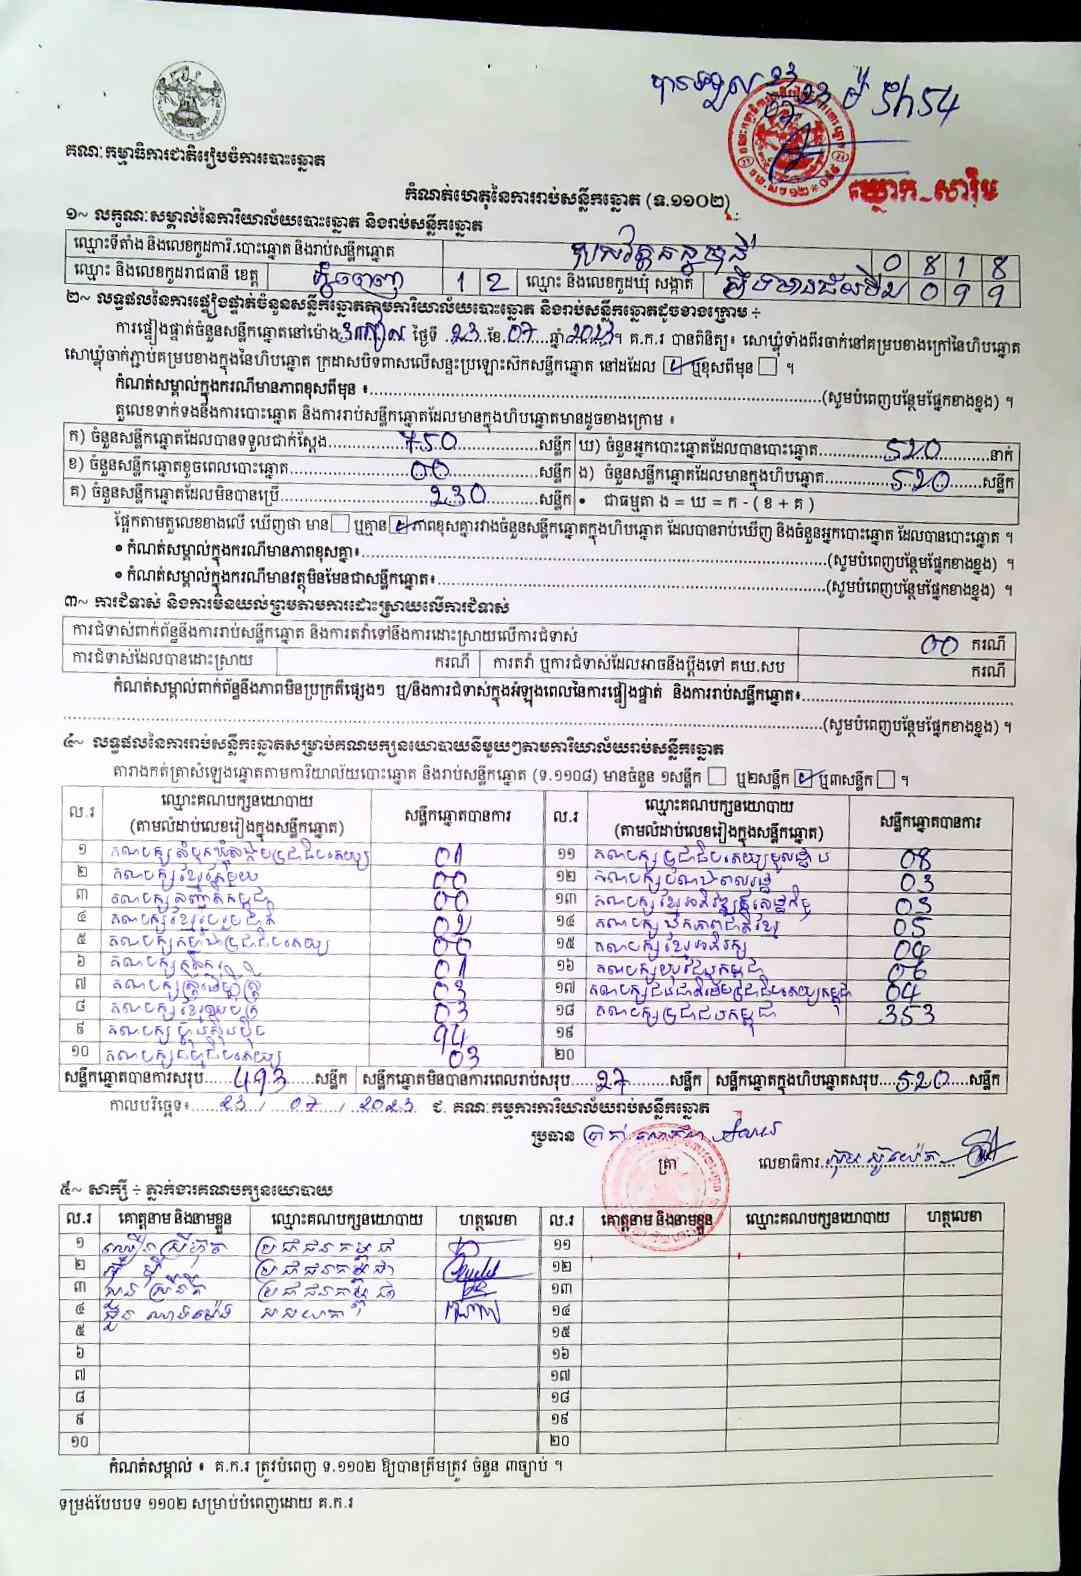 គណៈកម្មាធិការជាតិរៀបចំការបោះឆ្នោត
កំណត់ហេតុនៃការរាប់សន្លឹកឆ្នោត (ទ.១១០២)
១~ លក្ខណៈសម្គាល់នៃការិយាល័យបោះឆ្នោត និងរាប់សន្លឹកឆ្នោត
ឈ្មោះទីតាំង និងលេខកូដការិ.បោះឆ្នោត និងរាប់សន្លឹកឆ្នោត 0 8 1 8
ឈ្មោះ និងលេខកូដរាជធានី ខេត្ត ភ្នំពេញ 1 2 ឈ្មោះ និងលេខកូដឃុំ សង្កាត់ 0 9 9
២~ លទ្ធផលនៃការផ្ទៀងផ្ទាត់ចំនួនសន្លឹកឆ្នោតតាមការិយាល័យបោះឆ្នោត និងរាប់សន្លឹកឆ្នោតដូចខាងក្រោម ÷
ការផ្ទៀងផ្ទាត់ចំនួនសន្លឹកឆ្នោតនៅម៉ោង ថ្ងៃទី 23 ខែ 07 ឆ្នាំ 2023 ។ គ.ក.រ បានពិនិត្យ៖ សោឃ្លុំទាំងពីរចាក់នៅគម្របខាងក្រៅនៃហិបឆ្នោត
សោឃ្លុំចាក់ភ្ជាប់គម្របខាងក្នុងនៃហិបឆ្នោត ក្រដាសបិទពាសលើសន្ទះប្រឡោះស៊កសន្លឹកឆ្នោត នៅដដែល ឬខុសពីមុន ។
កំណត់សម្គាល់ក្នុងករណីមានភាពខុសពីមុន ៖ (សូមបំពេញបន្ថែមផ្នែកខាងខ្នង) ។
តួលេខទាក់ទងនឹងការបោះឆ្នោត និងការរាប់សន្លឹកឆ្នោតដែលមានក្នុងហិបឆ្នោតមានដូចខាងក្រោម ៖
ក) ចំនួនសន្លឹកឆ្នោតដែលបានទទួលជាក់ស្តែង 750 សន្លឹក ឃ) ចំនួនអ្នកបោះឆ្នោតដែលបានបោះឆ្នោត 520 នាក់
ខ) ចំនួនសន្លឹកឆ្នោតខូចពេលបោះឆ្នោត 00 សន្លឹក ង) ចំនួនសន្លឹកឆ្នោតដែលមានក្នុងហិបឆ្នោត 520 សន្លឹក
គ) ចំនួនសន្លឹកឆ្នោតដែលមិនបានប្រើ 230 សន្លឹក • ជាធម្មតា ង = ឃ = ក - ( ខ + គ )
ផ្អែកតាមតួលេខខាងលើ ឃើញថា មាន ឬគ្មាន ភាពខុសគ្នារវាងចំនួនសន្លឹកឆ្នោតក្នុងហិបឆ្នោត ដែលបានរាប់ឃើញ និងចំនួនអ្នកបោះឆ្នោត ដែលបានបោះឆ្នោត ។
• កំណត់សម្គាល់ក្នុងករណីមានភាពខុសគ្នា៖ (សូមបំពេញបន្ថែមផ្នែកខាងខ្នង) ។
• កំណត់សម្គាល់ក្នុងករណីមានវត្ថុមិនមែនជាសន្លឹកឆ្នោត៖ (សូមបំពេញបន្ថែមផ្នែកខាងខ្នង) ។
៣~ ការជំទាស់ និងការមិនយល់ព្រមតាមការដោះស្រាយលើការជំទាស់
ការជំទាស់ពាក់ព័ន្ធនឹងការរាប់សន្លឹកឆ្នោត និងការតវ៉ាទៅនឹងការដោះស្រាយលើការជំទាស់ 00 ករណី
ការជំទាស់ដែលបានដោះស្រាយ ករណី ការតវ៉ា ឬការជំទាស់ដែលអាចនឹងប្តឹងទៅ គឃ.សប ករណី
កំណត់សម្គាល់ពាក់ព័ន្ធនឹងភាពមិនប្រក្រតីផ្សេងៗ ឬ/និងការជំទាស់ក្នុងអំឡុងពេលនៃការផ្ទៀងផ្ទាត់ និងការរាប់សន្លឹកឆ្នោត៖
(សូមបំពេញបន្ថែមផ្នែកខាងខ្នង) ។
៤~ លទ្ធផលនៃការរាប់សន្លឹកឆ្នោតសម្រាប់គណបក្សនយោបាយនីមួយៗតាមការិយាល័យរាប់សន្លឹកឆ្នោត
តារាងកត់ត្រាសំឡេងឆ្នោតតាមការិយាល័យបោះឆ្នោត និងរាប់សន្លឹកឆ្នោត (ទ.១១០៨) មានចំនួន ១សន្លឹក ឬ២សន្លឹក ឬ៣សន្លឹក ។
ល.រ ឈ្មោះគណបក្សនយោបាយ (តាមលំដាប់លេខរៀងក្នុងសន្លឹកឆ្នោត) សន្លឹកឆ្នោតបានការ ល.រ ឈ្មោះគណបក្សនយោបាយ (តាមលំដាប់លេខរៀងក្នុងសន្លឹកឆ្នោត) សន្លឹកឆ្នោតបានការ
១ គណបក្សសំបុកឃ្មុំសង្គមប្រជាធិបតេយ្យ 01 ១១ គណបក្សប្រជាធិបតេយ្យមូលដ្ឋាន 08
២ គណបក្សខ្មែរតែមួយ 00 ១២ 03
៣ គណបក្ស កម្ពុជា 00 ១៣ គណបក្សខ្មែរអភិវឌ្ឍន៍សេដ្ឋកិច្ច 03
៤ គណបក្សខ្មែររួបរួមជាតិ 02 ១៤ គណបក្សឯកភាពជាតិខ្មែរ 05
៥ គណបក្សកម្លាំងប្រជាធិបតេយ្យ 00 ១៥ គណបក្សខ្មែរអភិរក្ស 04
៦ គណបក្ស 01 ១៦ គណបក្សយុវជនកម្ពុជា 06
៧ គណបក្សស្ត្រីដើម្បីស្ត្រី 03 ១៧ គណបក្សជនជាតិដើមប្រជាធិបតេយ្យកម្ពុជា 04
៨ គណបក្សខ្មែរ 03 ១៨ គណបក្សប្រជាជនកម្ពុជា 353
៩ គណបក្សហ៊្វុនស៊ិនប៉ិច 94 ១៩
១០ គណបក្សធម្មាធិបតេយ្យ 03 ២០
សន្លឹកឆ្នោតបានការសរុប 493 សន្លឹក សន្លឹកឆ្នោតមិនបានការពេលរាប់សរុប 27 សន្លឹក សន្លឹកឆ្នោតក្នុងហិបឆ្នោតសរុប 520 សន្លឹក
កាលបរិច្ឆេទ៖ 23 / 07 / 2023 ជ. គណៈកម្មការការិយាល័យរាប់សន្លឹកឆ្នោត
ប្រធាន
ត្រា លេខាធិការ
៥~ សាក្សី ÷ ភ្នាក់ងារគណបក្សនយោបាយ
ល.រ គោត្តនាម និងនាមខ្លួន ឈ្មោះគណបក្សនយោបាយ ហត្ថលេខា ល.រ គោត្តនាម និងនាមខ្លួន ឈ្មោះគណបក្សនយោបាយ ហត្ថលេខា
១ ប្រជាជនកម្ពុជា ១១
២ ប្រជាជនកម្ពុជា ១២
៣ ប្រជាជនកម្ពុជា ១៣
៤ ១៤
៥ ១៥
៦ ១៦
៧ ១៧
៨ ១៨
៩ ១៩
១០ ២០
កំណត់សម្គាល់ ៖ គ.ក.រ ត្រូវបំពេញ ទ.១១០២ ឱ្យបានត្រឹមត្រូវ ចំនួន ៣ច្បាប់ ។
ទម្រង់បែបបទ ១១០២ សម្រាប់បំពេញដោយ គ.ក.រ